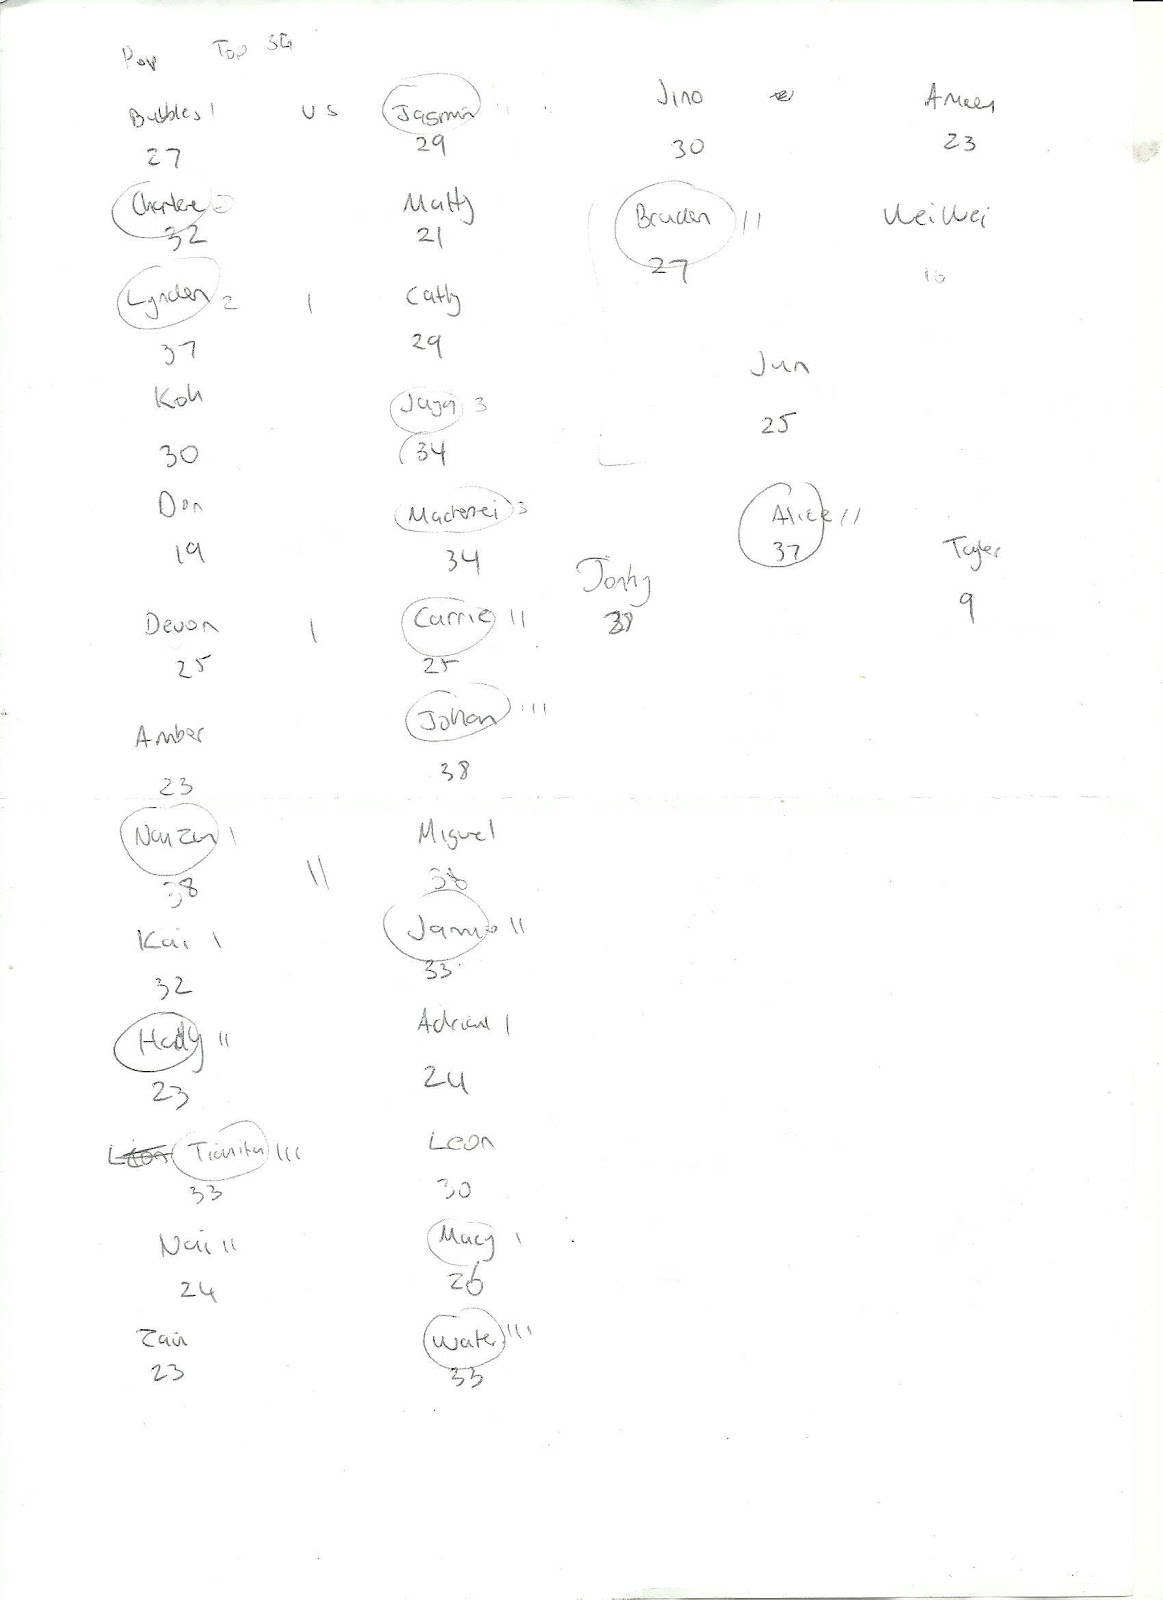 Pop Top 34
Bubbles 1 vs Jasmin 11 Jino Ameer
27 29 30 23
Charlene Matty Braden 11 Wei Wei
32 21 27 16
Lynden 2 1 Cathy
37 29 Jun
Koh Jaya 3 25
30 34
Don Mackenzei 3 Alice 11
19 34 37 Tayler
Jonny 9
Devon 1 Carrie 11
25 25
Amber Johan 111
23 38
Nanzen 1 11 Miguel
38 38
Kai 1 Jamie 11
32 33
Hadly 11 Adrian 1
23 24
Leon Tianita 111 Leon
33 30
Nai 11 Macy 1
24 26
Zain Water 111
23 33